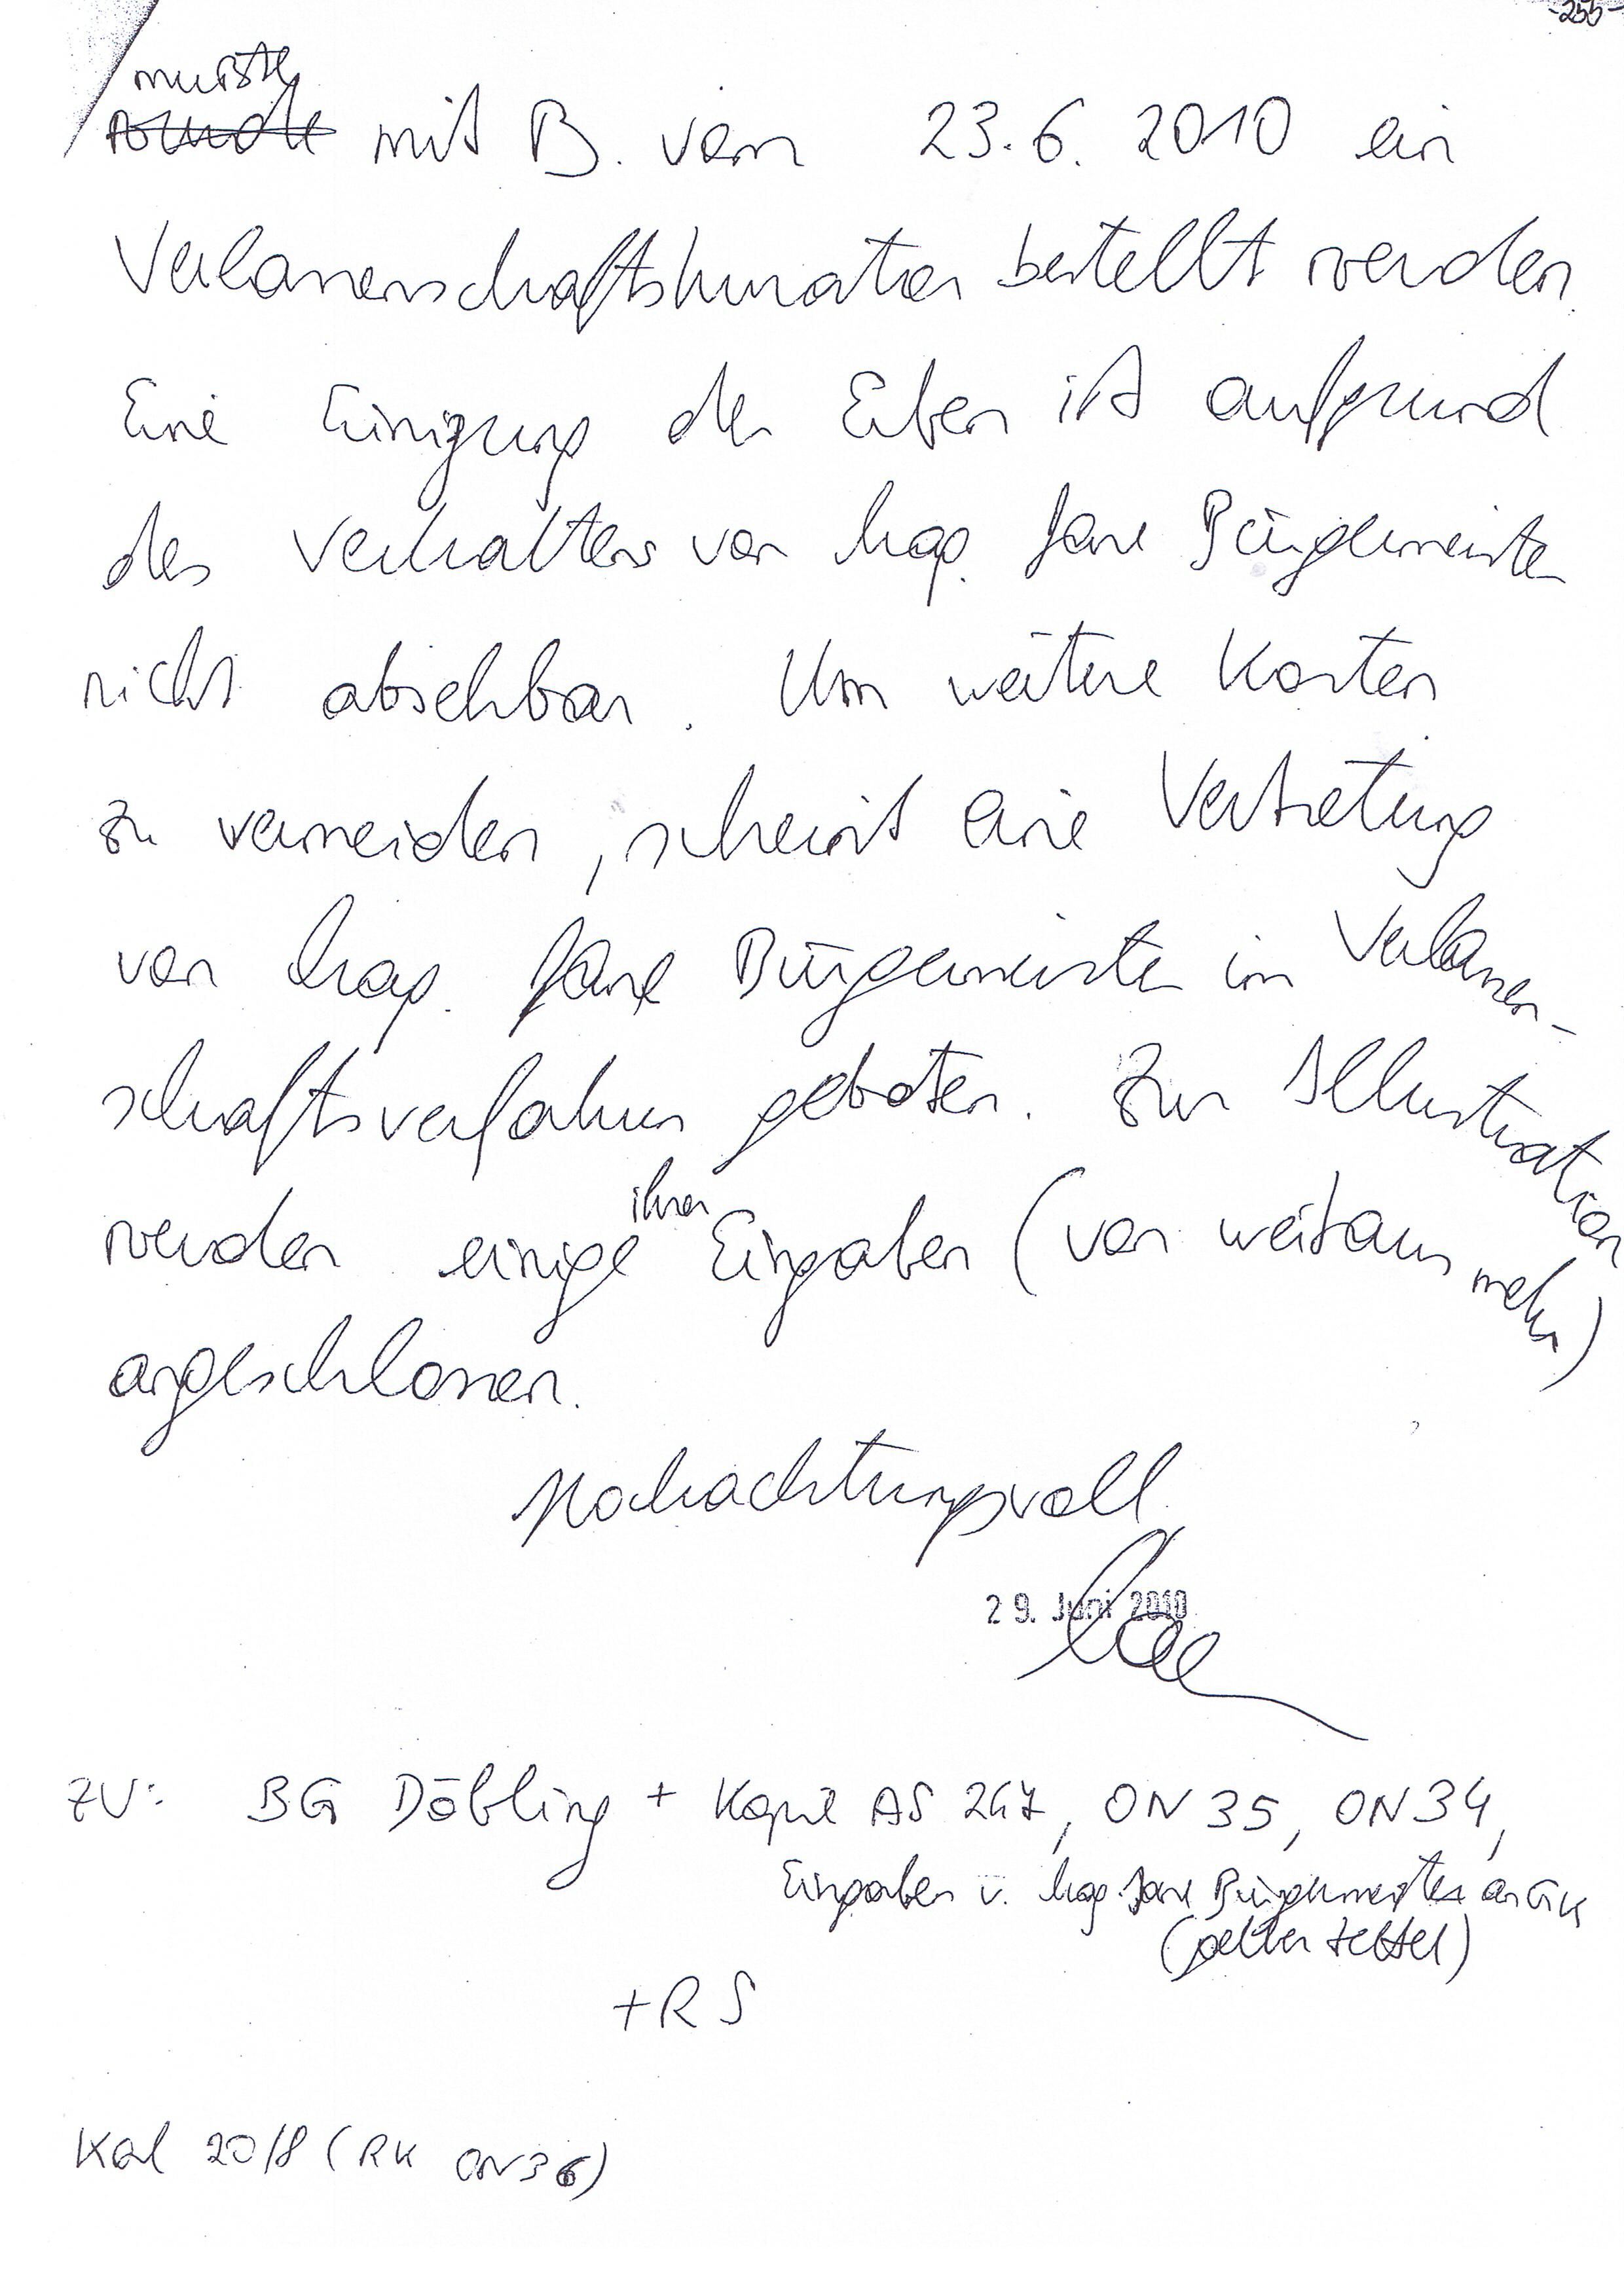 -255-
musste
wurde mit B. vom 23.6.2010 ein
Verlassenschaftskurator bestellt werden.
Eine Einigung der Erben ist aufgrund
des Verhaltens von Mag. Jane Bürgermeister
nicht absehbar. Um weitere Kosten
zu vermeiden, scheint eine Vertretung
von Mag. Jane Bürgermeister im Verlassen-
schaftsverfahren geboten. Zur Illustration
werden einige ihrer Eingaben (von weitaus mehr)
angeschlossen.
Hochachtungsvoll
29. Juni 2010
ZV: BG Döbling + Kopie AS 247, ON 35, ON 34,
Eingaben v. Mag. Jane Bürgermeister an GK
(gelber Zettel)
+ RS
Kal 20/8 (RK ON 36)